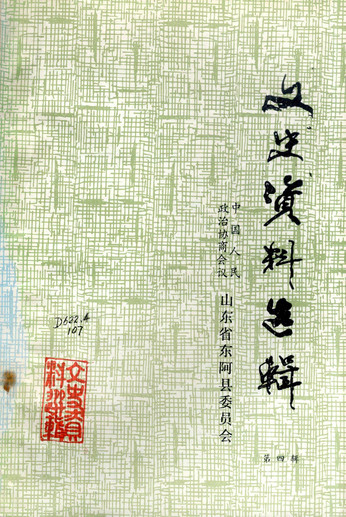 文史资料选辑
中国人民
政治协商会议
山东省东阿县委员会
第四辑
D622.4
107
文史资
料选辑